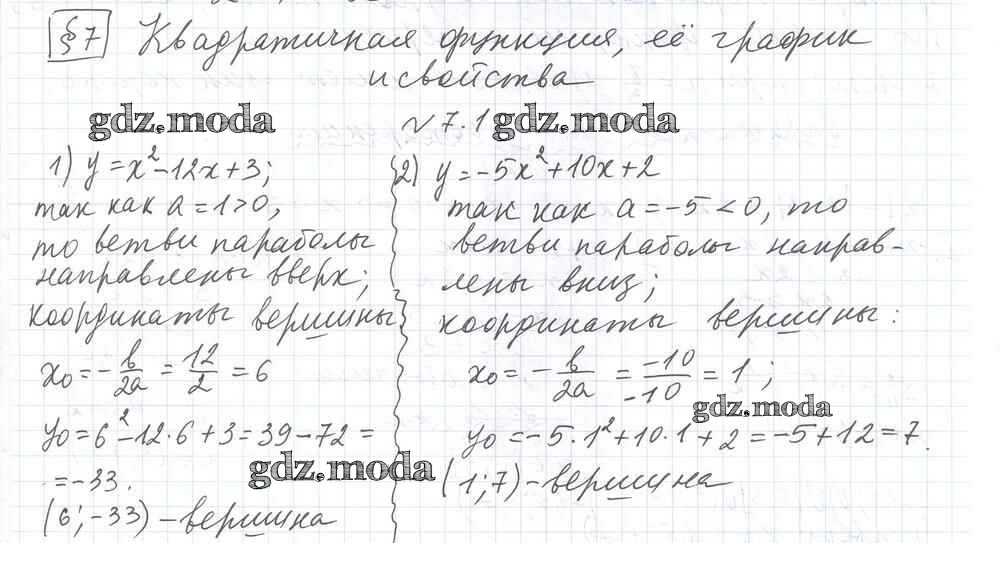 §7 Квадратичная функция, её график
и свойства
gdz.moda № 7.1 gdz.moda
1) y = x² - 12x + 3;
так как a = 1 > 0,
то ветви параболы
направлены вверх;
координаты вершины
x₀ = - b/2a = 12/2 = 6
y₀ = 6² - 12·6 + 3 = 39 - 72 =
= -33.
(6; -33) - вершина
2) y = -5x² + 10x + 2
так как a = -5 < 0, то
ветви параболы направ-
лены вниз;
координаты вершины:
x₀ = - b/2a = -10/-10 = 1;
gdz.moda
y₀ = -5·1² + 10·1 + 2 = -5 + 12 = 7.
gdz.moda
(1; 7) - вершина